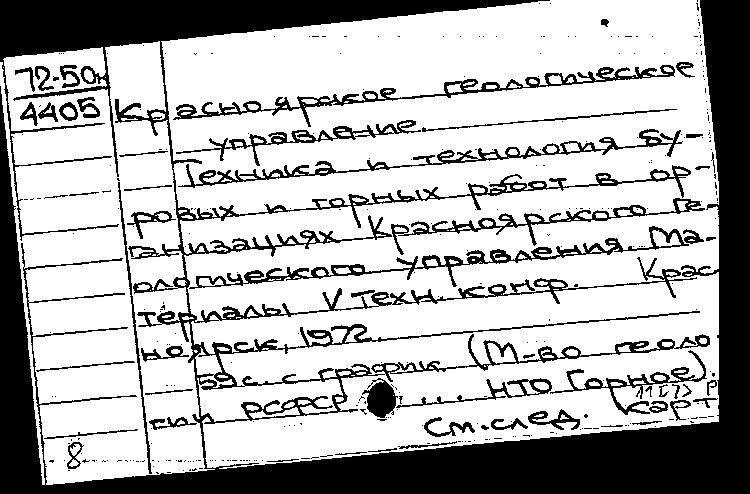 72-50к
4405
Красноярское геологическое
управление.
Техника и технология бу-
ровых и горных работ в ор-
ганизациях Красноярского ге-
ологического управления. Ма-
териалы V техн. конф. Крас
ноярск, 1972.
59 с. с график. (М-во геоло
гии РСФСР ... НТО Горное).
См. след. карт
8